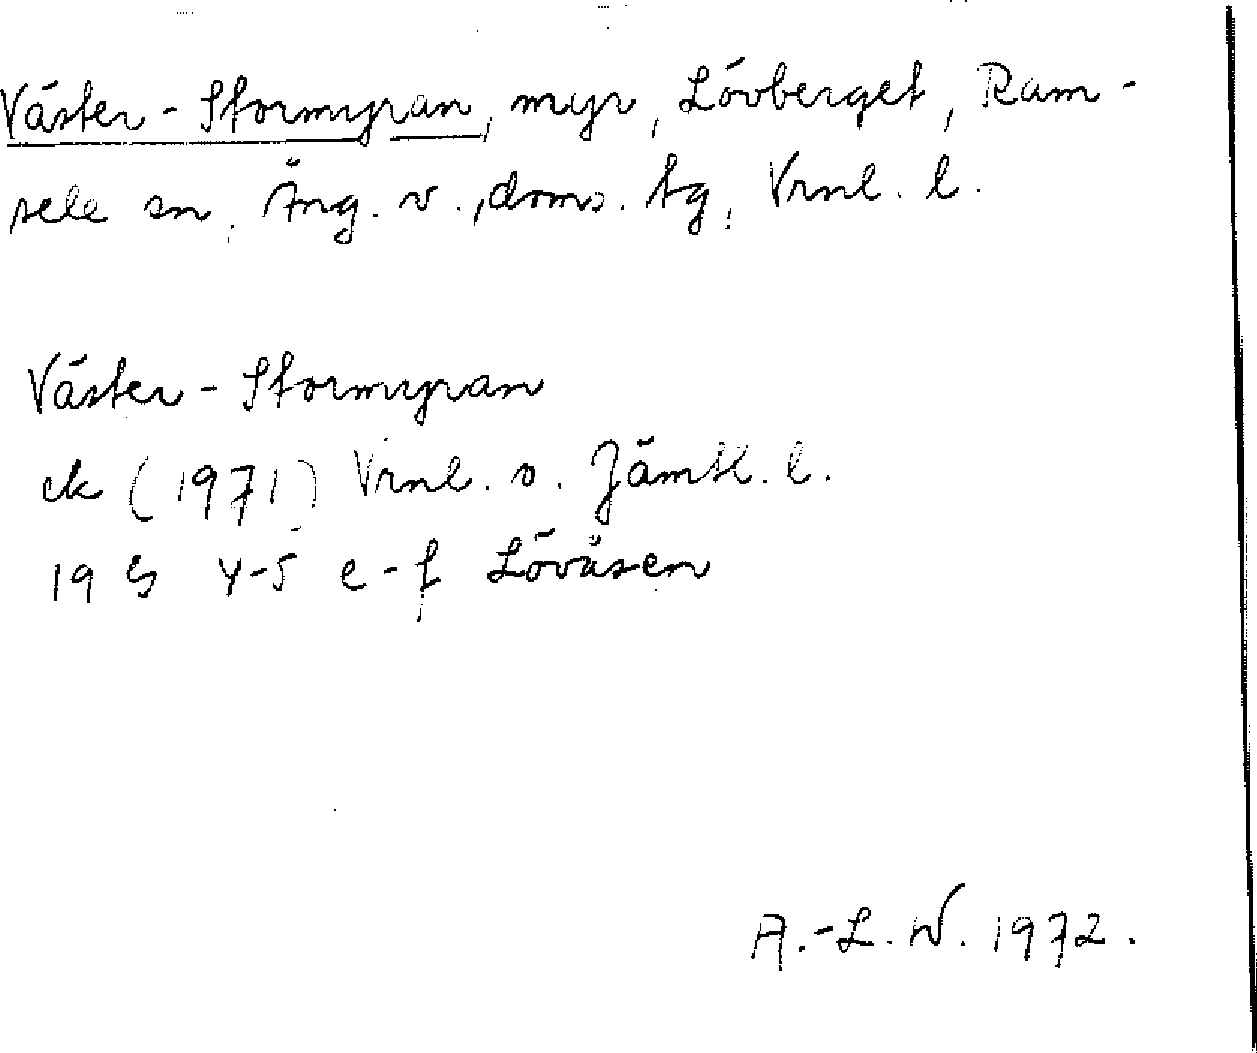 Väster-Stormyran, myr, Lövberget, Ram-
sele sn, Ång. v., doms. tg, Vrnl. l.
Väster-Stormyran
ek (1971) Vrnl. o. Jämtl. l.
19 G 4-5 e-f Lövåsen
A.-L. W. 1972.